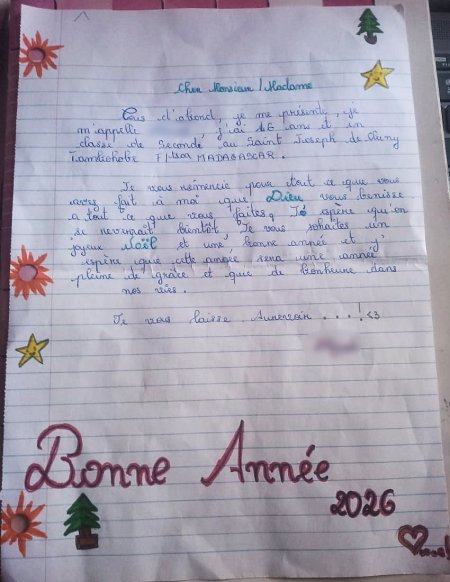 Cher Monsieur / Madame
Tous d'abord, je me présente, je
m'appelle j'ai 16 ans et en
classe de Seconde au Saint Joseph de Cluny
F/tsoa MADAGASCAR.
Je vous remercie pour tout ce que vous
avez fait à moi que Dieu vous benisse
a tout ce que vous faites, Je espère qu'on
se reverrait bientôt, Je vous souhaites un
joyeux Noël et une bonne année et j'
espère que cette année sera une année
pleine de grâce et que de bonheure dans
nos vies.
Je vous laisse Aurevoir ...! <3
Bonne Année
2026